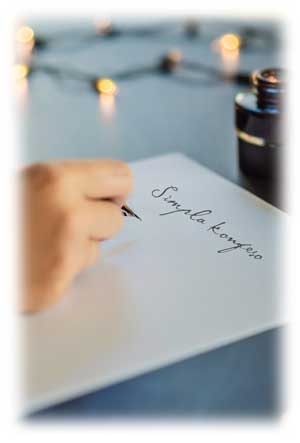 Simpla kongeso